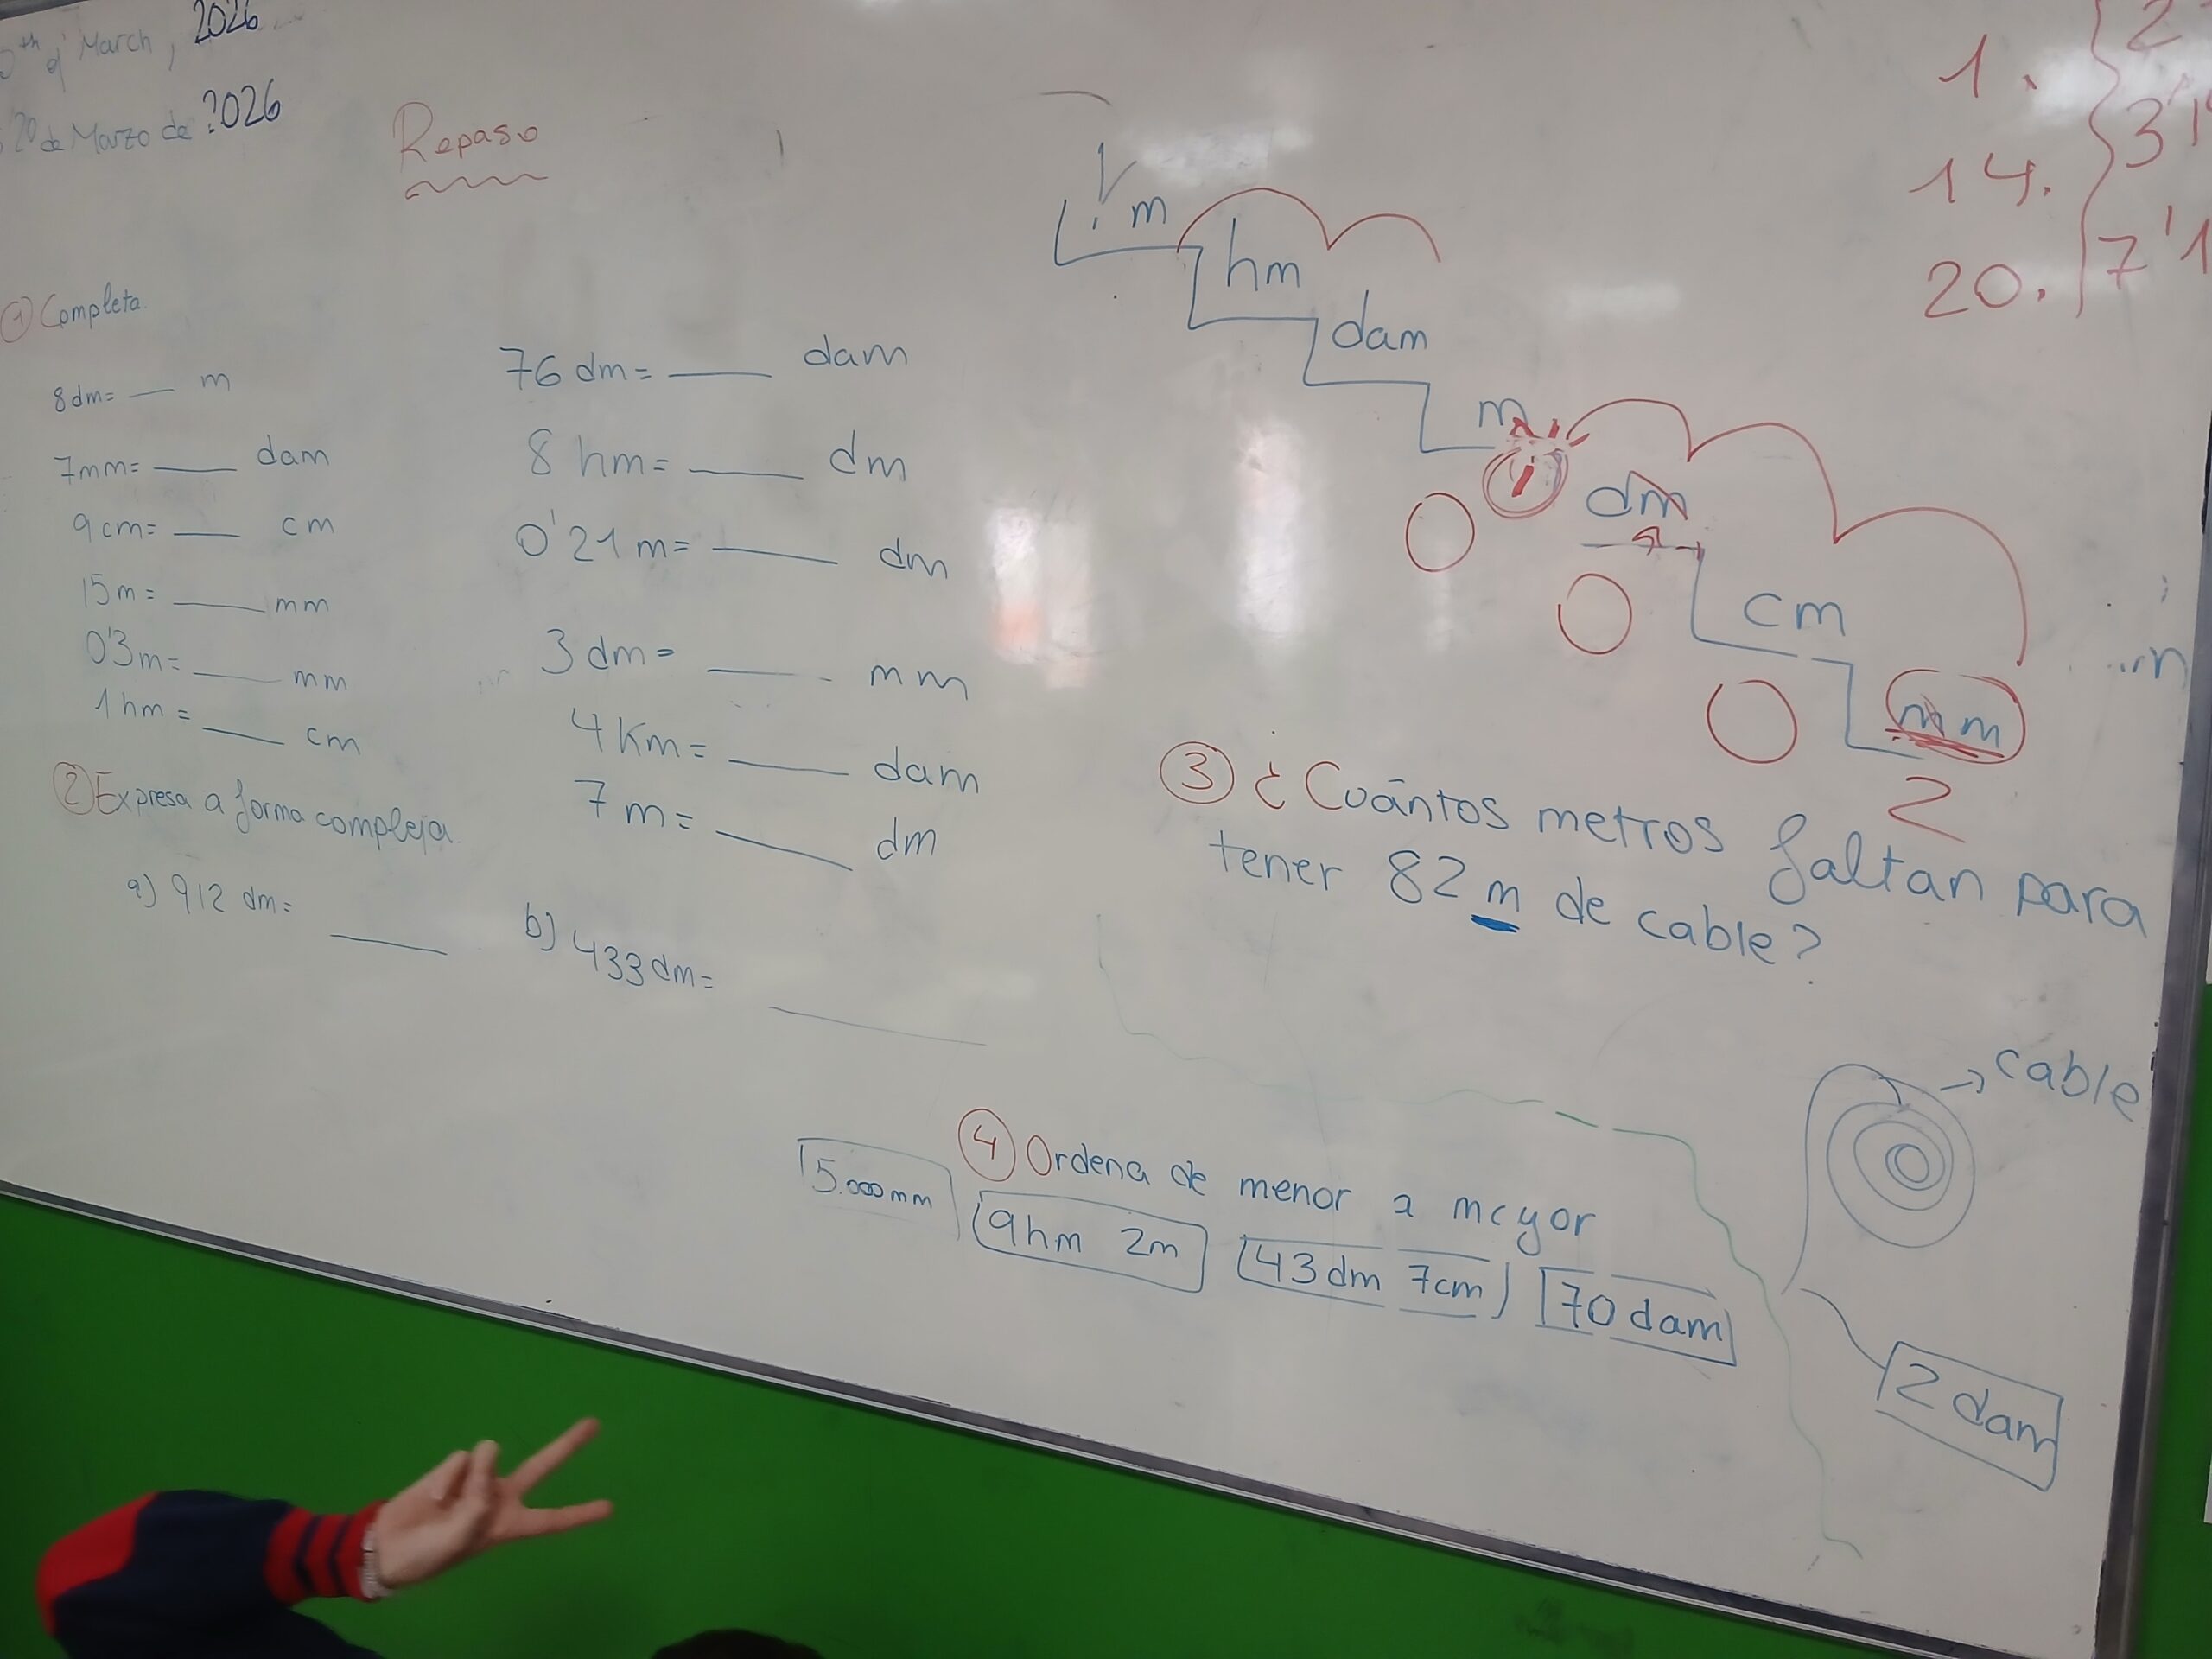 th of March, 2026
20 de Marzo de 2026
Repaso
① Completa.
8dm= ___ m
7mm= ___ dam
9cm= ___ cm
15m= ___ mm
0'3m= ___ mm
1hm= ___ cm
76 dm= ___ dam
8 hm= ___ dm
0'21 m= ___ dm
3 dm= ___ mm
4 Km= ___ dam
7 m= ___ dm
② Expresa a forma compleja
a) 912 dm= ___
b) 433 dm= ___
m
hm
dam
m
dm
cm
mm
2
1.
14.
20.
2
3'
7'1
③ ¿Cuántos metros faltan para
tener 82 m de cable?
→ cable
2 dam
④ Ordena de menor a mayor
5.000 mm
9hm 2m
43dm 7cm
70 dam